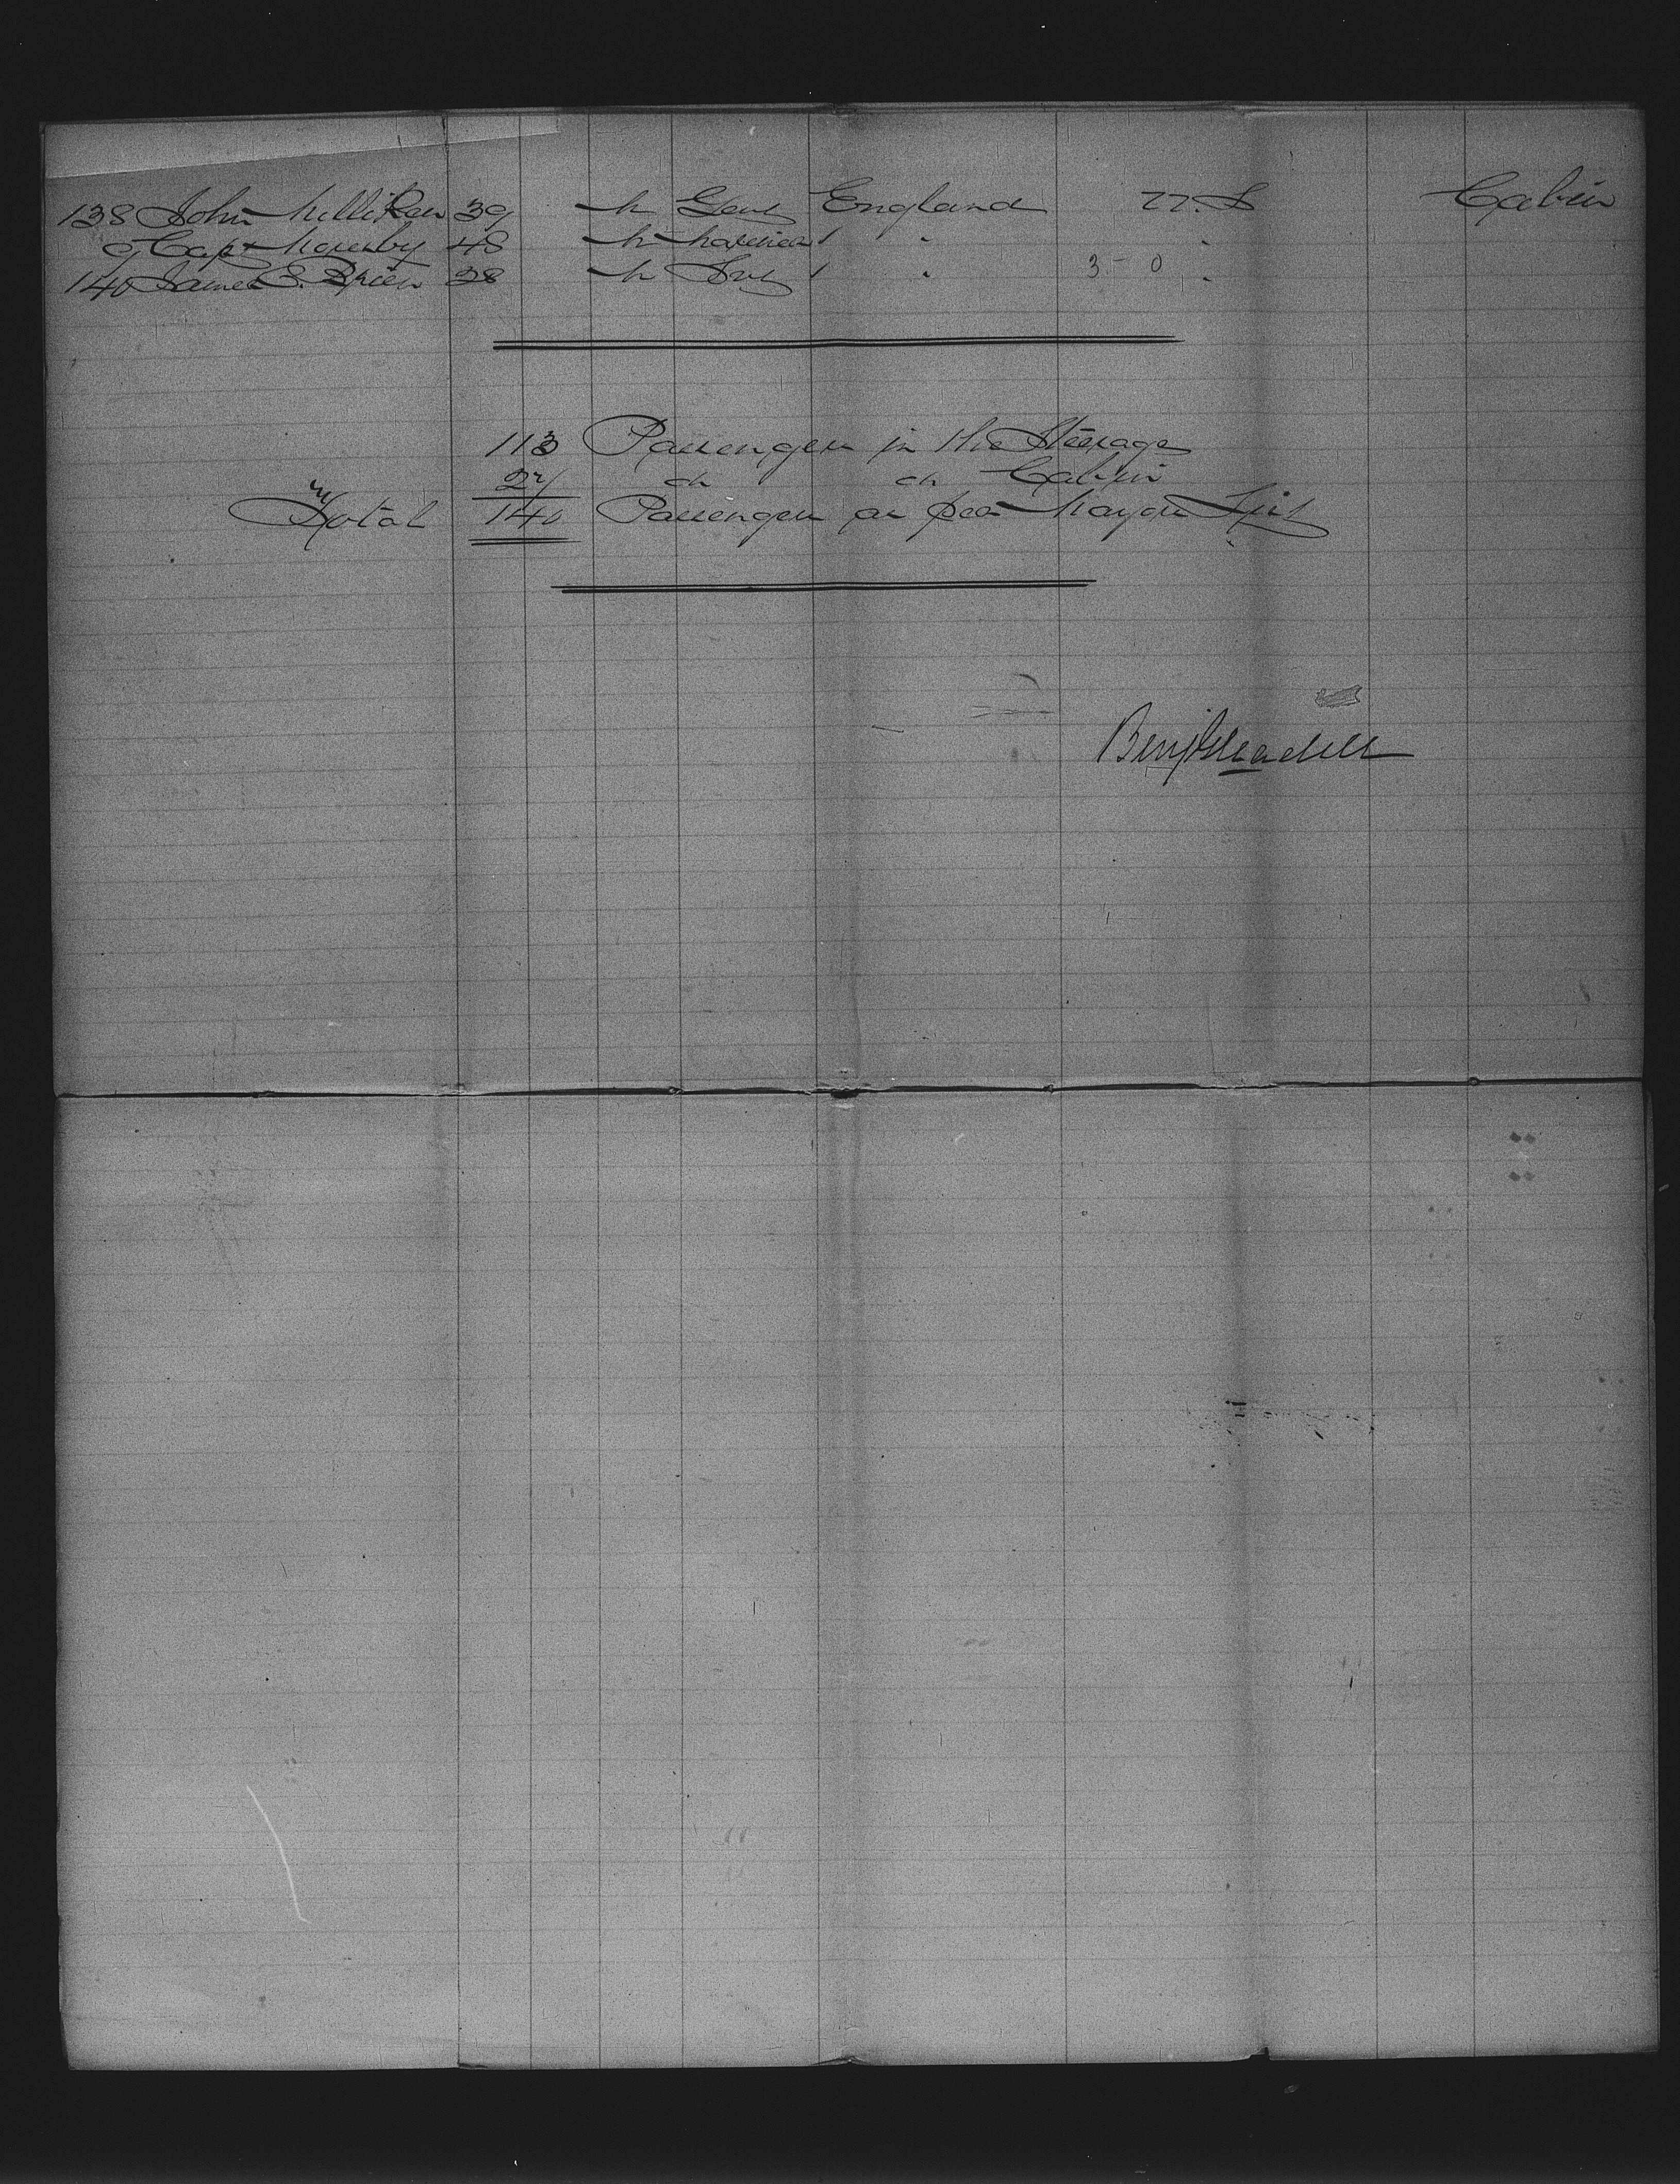 138 John Milliken 39 M Gent England U.S Cabin
9 Capt 48 M Mariner " "
140 James E. Brien 28 M " 3 - 0 "
113 Passengers in the Steerage
27 do do Cabin
Total 140 Passengers as per List
Benj Gleadell